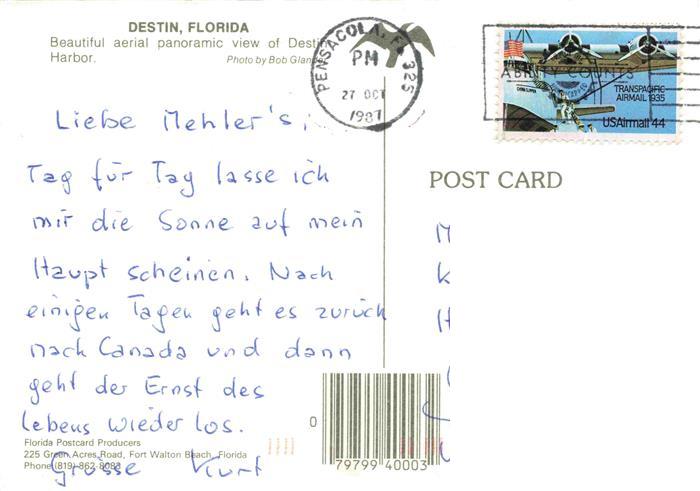 DESTIN, FLORIDA
Beautiful aerial panoramic view of Destin
Harbor. Photo by Bob Glander
PENSACOLA, FL 325
PM
27 OCT
1987
ABILITY COUNTS
TRANSPACIFIC
AIRMAIL 1935
USAirmail 44
Liebe Mehler's,
Tag für Tag lasse ich
mir die Sonne auf mein
Haupt scheinen. Nach
einigen Tagen geht es zurück
nach Canada und dann
geht der Ernst des
Lebens wieder los.
Grüsse Kurt
POST CARD
M
K
H
Florida Postcard Producers
225 Green Acres Road, Fort Walton Beach, Florida
Phone (819) 862-8083
0
79799 40003